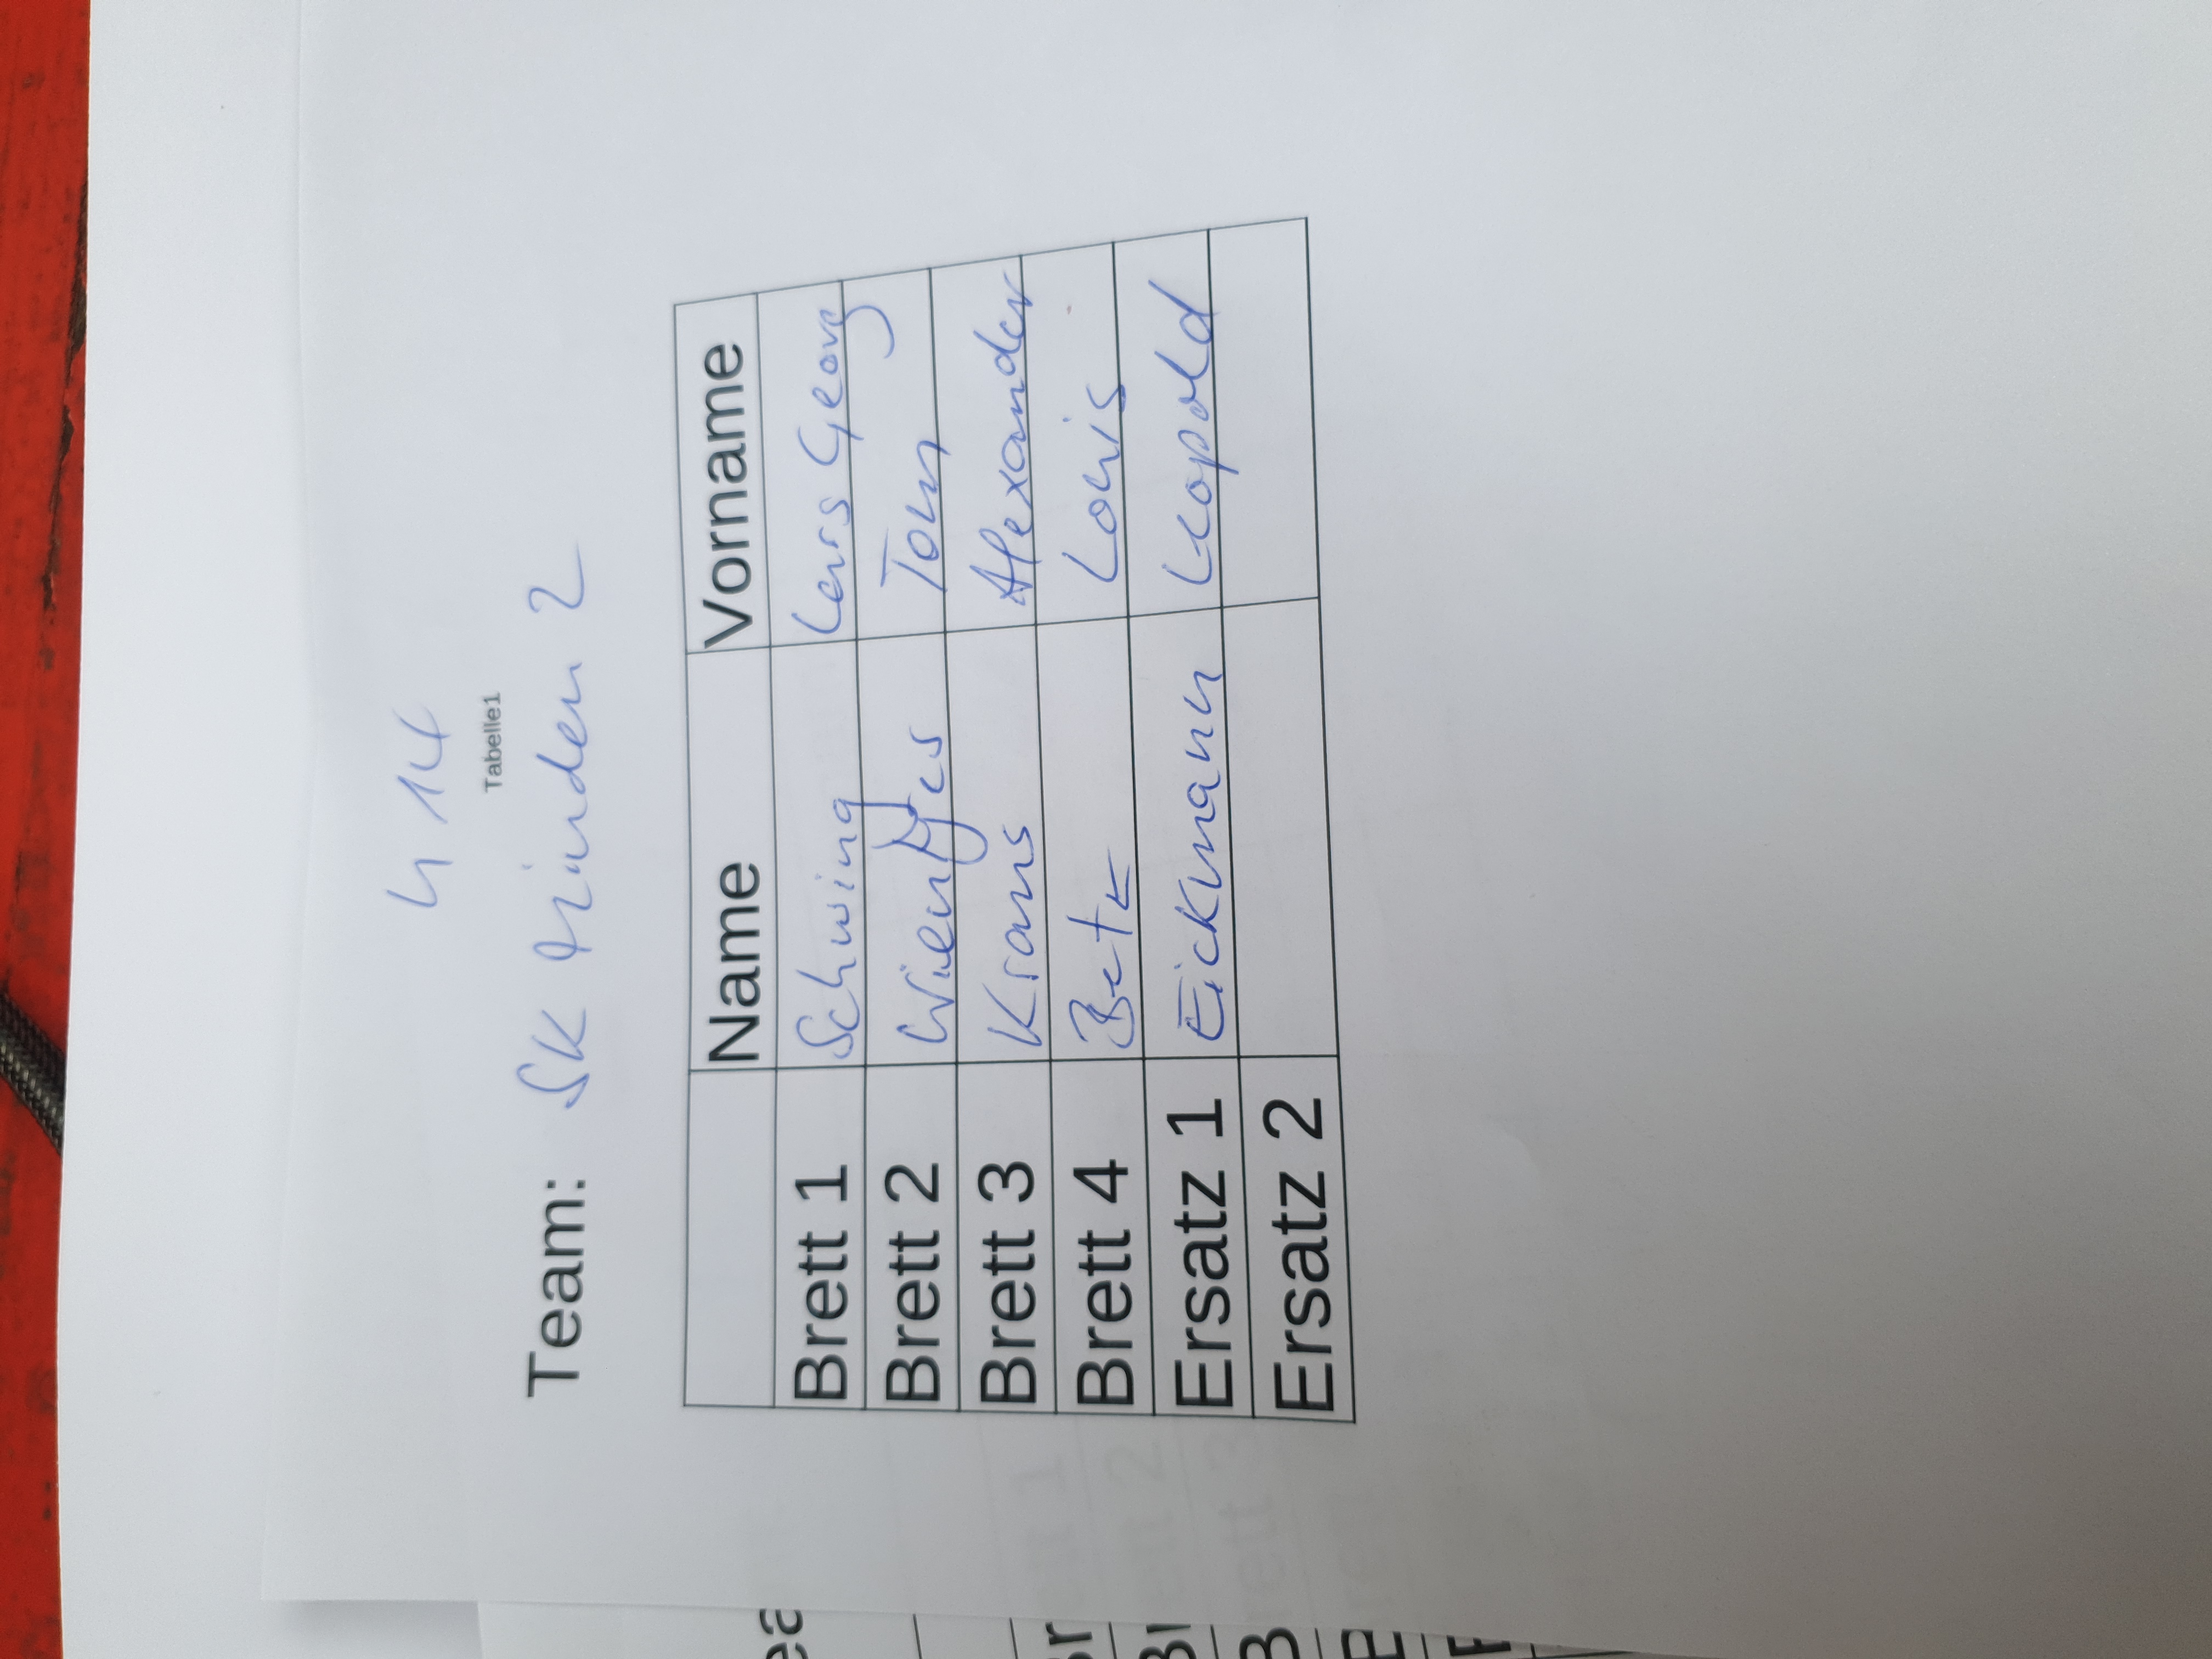 414
Tabelle1
Team: SK Minden 2
Name Vorname
Brett 1 Schwing Lars Georg
Brett 2 Tom
Brett 3 Krans Alexander
Brett 4 Louis
Ersatz 1 Eickmann Leopold
Ersatz 2